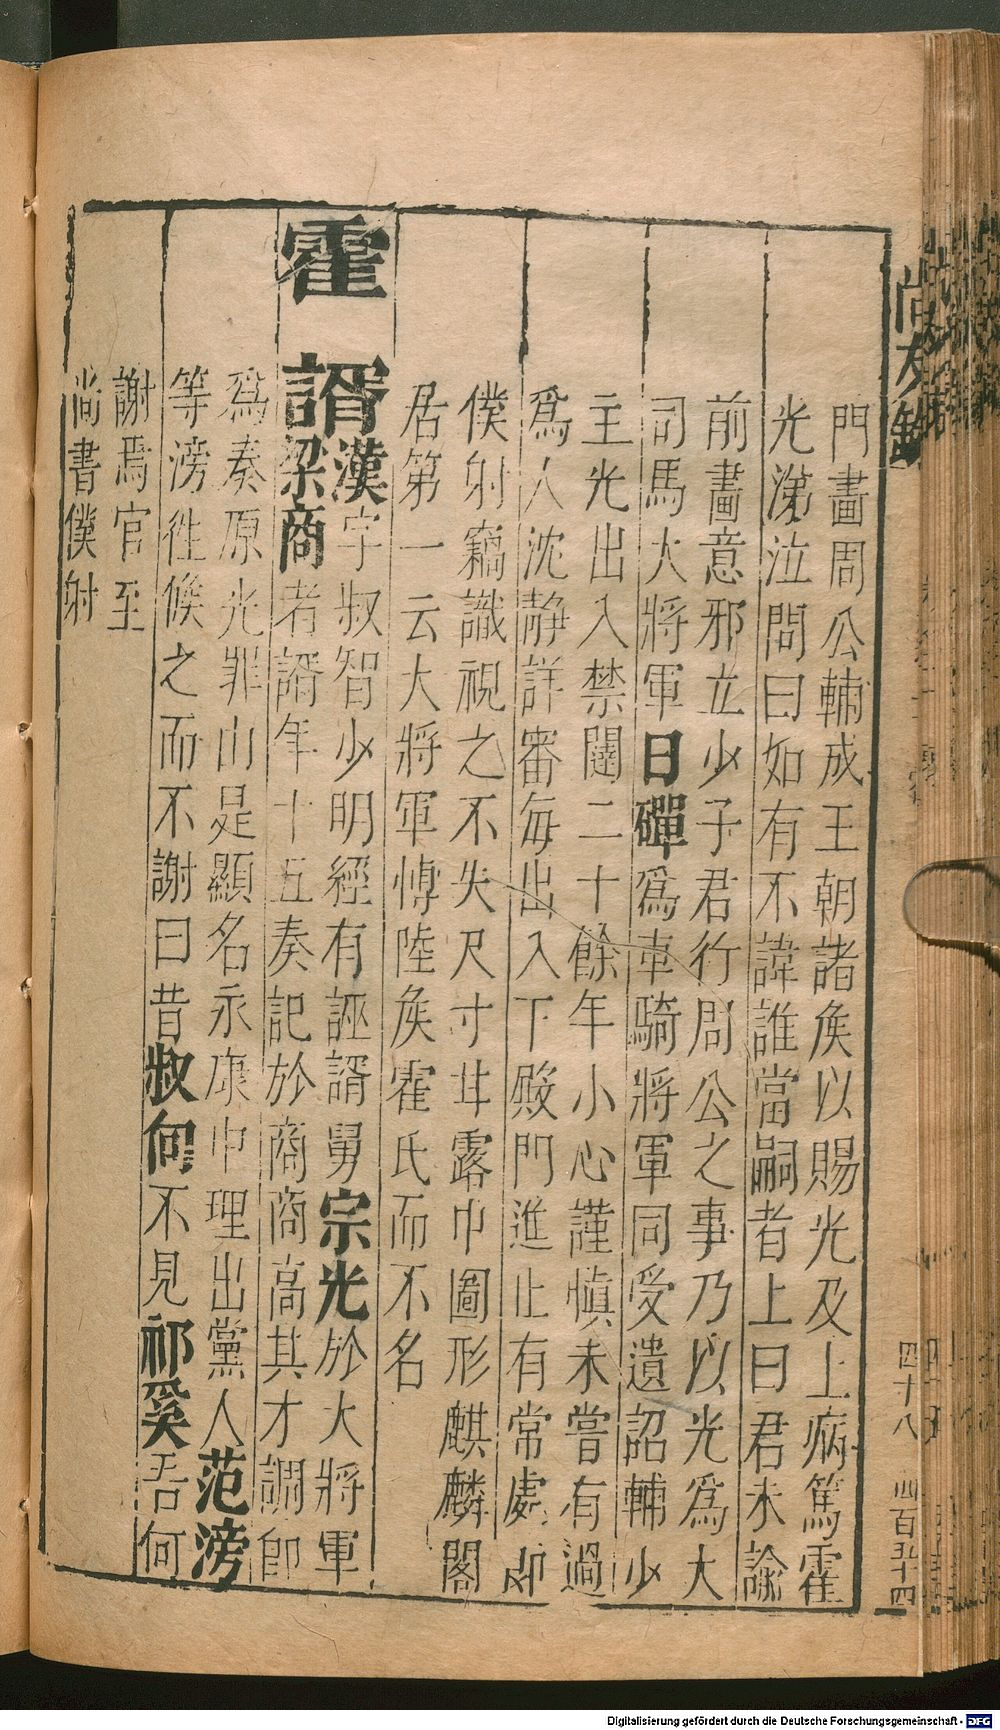 門畫周公輔成王朝諸侯以賜光及上病篤霍
光涕泣問曰如有不諱誰當嗣者上曰君未諭
前畫意邪立少子君行周公之事乃以光爲大
司馬大將軍日磾爲車騎將軍同受遺詔輔少
主光出入禁闥二十餘年小心謹慎未嘗有過
爲人沈静詳審每出入下殿門進止有常處郎
僕射竊識視之不失尺寸甘露中圖形麒麟閣
居第一云大將軍愽陸侯霍氏而不名
霍諝漢字叔智少明經有誣諝舅宗光於大將軍
梁商者諝年十五奏記於商商高其才調即
爲奏原光罪由是顯名永康中理出黨人范滂
等滂徃候之而不謝曰昔叔向不見祁奚吾何
謝焉官至
尚書僕射
尚友錄
四十八
四百五十四
Digitalisierung gefördert durch die Deutsche Forschungsgemeinschaft - DFG